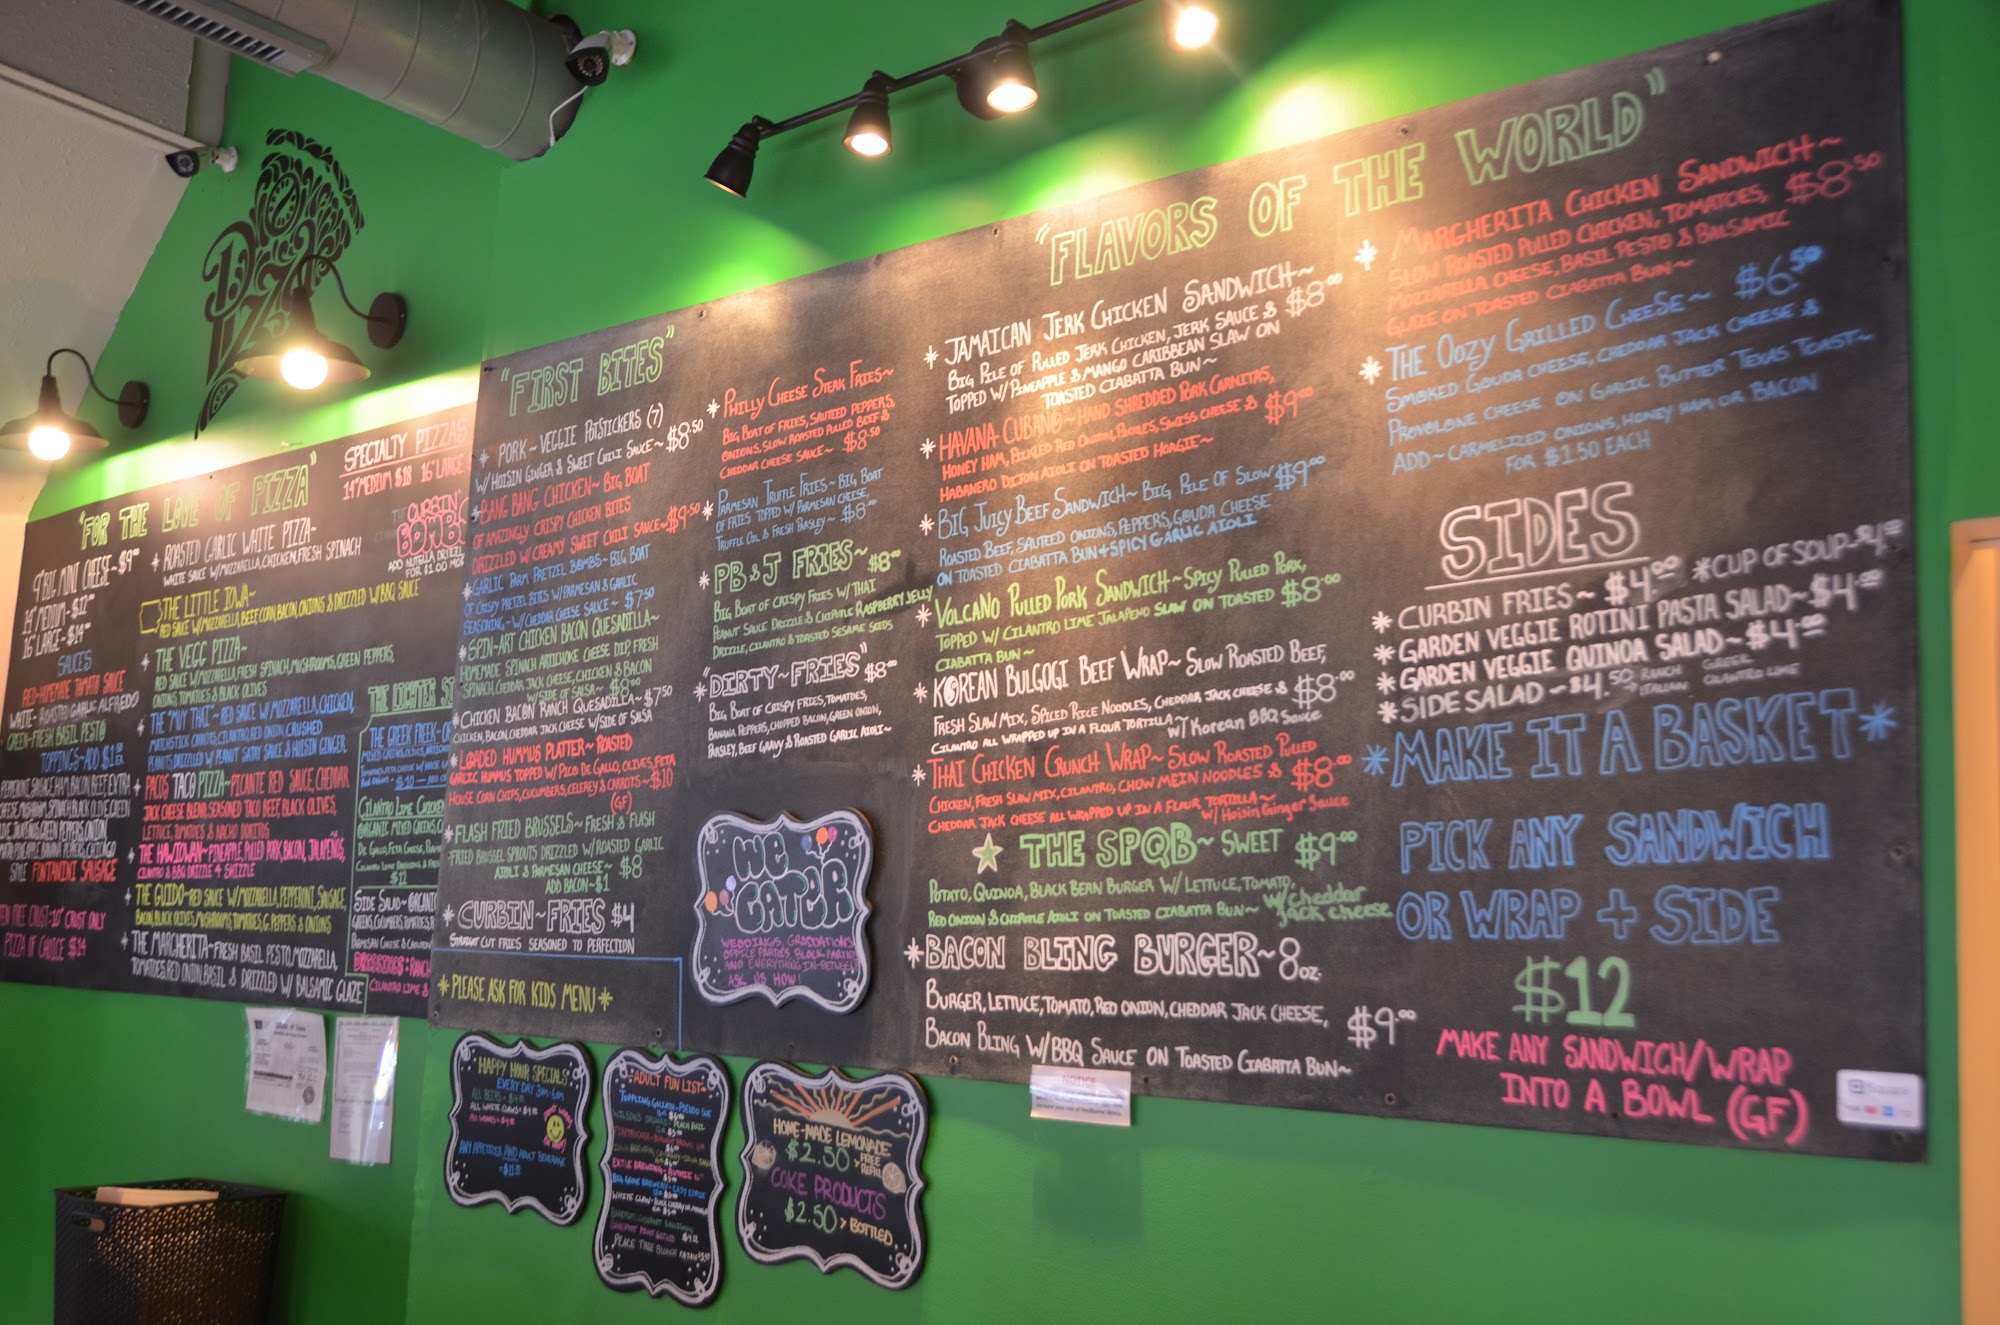 "FOR THE LOVE OF PIZZA"
9" BIG MINI CHEESE~$9
14" MEDIUM~$12
16" LARGE~$14
SAUCES
RED~HOMEMADE TOMATO SAUCE
WHITE~ROASTED GARLIC ALFREDO
GREEN~FRESH BASIL PESTO
TOPPINGS~ADD $1
STYLE FONTANINI SAUSAGE
CRUST~10" CRUST ONLY
PIZZA OF CHOICE $14
ROASTED GARLIC WHITE PIZZA~
WHITE SAUCE W/MOZZARELLA, CHICKEN, FRESH SPINACH
THE LITTLE IOWA~
RED SAUCE W/MOZZARELLA, BEEF, CORN, BACON, ONIONS & DRIZZLED W/BBQ SAUCE
THE VEGG PIZZA~
RED SAUCE W/MOZZARELLA, FRESH SPINACH, MUSHROOMS, GREEN PEPPERS,
ONIONS, TOMATOES & BLACK OLIVES
THE "MUY THAI"~RED SAUCE W/MOZZARELLA, CHICKEN,
MATCHSTICK CARROTS, CILANTRO, RED ONION, CRUSHED
PEANUTS, DRIZZLED W/PEANUT SATAY SAUCE & HOISIN GINGER
PACOS TACO PIZZA~PICANTE RED SAUCE, CHEDDAR
JACK CHEESE BLEND, SEASONED TACO BEEF, BLACK OLIVES,
LETTUCE, TOMATOES & NACHO DORITOS
THE HAWIOWAN~PINEAPPLE, PULLED PORK, BACON, JALAPEÑOS,
CILANTRO & BBQ DRIZZLE 4 SHIZZLE
THE GUIDO~RED SAUCE W/MOZZARELLA, PEPPERONI, SAUSAGE,
BACON, BLACK OLIVES, MUSHROOMS, TOMATOES, G. PEPPERS & ONIONS
THE MARGHERITA~FRESH BASIL PESTO, MOZZARELLA,
TOMATOES, RED ONION, BASIL & DRIZZLED W/BALSAMIC GLAZE
SPECIALTY PIZZAS
14" MEDIUM $18 16" LARGE
THE CURBIN'
BOMB
ADD NUTELLA DRIZZLE
FOR $1.00 MORE
THE LIGHTER
THE GREEK FREEK~
CILANTRO LIME CHICKEN
ORGANIC MIXED GREENS,
$12
SIDE SALAD~ORGANIC
DRESSINGS: RANCH
CILANTRO LIME &
"FIRST BITES"
* PORK~VEGGIE POTSTICKERS (7)
W/HOISIN GINGER & SWEET CHILI SAUCE~$8.50
* BANG BANG CHICKEN~BIG BOAT
OF AMAZINGLY CRISPY CHICKEN BITES
DRIZZLED W/CREAMY SWEET CHILI SAUCE~$9.50
* GARLIC PARM PRETZEL BOMBS~BIG BOAT
OF CRISPY PRETZEL BITES W/PARMESAN & GARLIC
SEASONING~W/CHEDDAR CHEESE SAUCE~$7.50
* SPIN~ART CHICKEN BACON QUESADILLA~
HOMEMADE SPINACH ARTICHOKE CHEESE DIP, FRESH
SPINACH, CHEDDAR JACK CHEESE, CHICKEN & BACON
W/SIDE OF SALSA~$8.00
* CHICKEN BACON RANCH QUESADILLA~$7.50
CHICKEN, BACON, CHEDDAR JACK CHEESE W/SIDE OF SALSA
* LOADED HUMMUS PLATTER~ROASTED
GARLIC HUMMUS TOPPED W/PICO DE GALLO, OLIVES, FETA
HOUSE CORN CHIPS, CUCUMBERS, CELEREY & CARROTS~$10
(GF)
* FLASH FRIED BRUSSELS~FRESH & FLASH
FRIED BRUSSEL SPROUTS DRIZZLED W/ROASTED GARLIC
AIOLI & PARMESAN CHEESE~$8
ADD BACON~$1
* CURBIN~FRIES $4
STRAIGHT CUT FRIES SEASONED TO PERFECTION
*PLEASE ASK FOR KIDS MENU*
* PHILLY CHEESE STEAK FRIES~
BIG BOAT OF FRIES, SAUTEED PEPPERS,
ONIONS, SLOW ROASTED PULLED BEEF &
CHEDDAR CHEESE SAUCE~$8.50
* PARMESAN TRUFFLE FRIES~BIG BOAT
OF FRIES TOPPED W/PARMESAN CHEESE,
TRUFFLE OIL & FRESH PARSLEY~$8.00
* PB&J FRIES~$8.00
BIG BOAT OF CRISPY FRIES W/THAI
PEANUT SAUCE DRIZZLE & CHIPOTLE RASPBERRY JELLY
DRIZZLE, CILANTRO & TOASTED SESAME SEEDS
* "DIRTY~FRIES" $8.00
BIG BOAT OF CRISPY FRIES, TOMATOES,
BANANA PEPPERS, CHOPPED BACON, GREEN ONION,
PARSLEY, BEEF GRAVY & ROASTED GARLIC AIOLI~
WE CATER
WEDDINGS, GRADUATIONS
OFFICE PARTIES, BLOCK PARTIES
AND EVERYTHING IN-BETWEEN
ASK US HOW!
"FLAVORS OF THE WORLD"
* JAMAICAN JERK CHICKEN SANDWICH~$8.00
BIG PILE OF PULLED JERK CHICKEN, JERK SAUCE &
TOPPED W/PINEAPPLE & MANGO CARIBBEAN SLAW ON
TOASTED CIABATTA BUN~
* HAVANA CUBANO~HAND SHREDDED PORK CARNITAS, $9.00
HONEY HAM, PICKLED RED ONION, PICKLES, SWISS CHEESE &
HABANERO DIJON AIOLI ON TOASTED HOAGIE~
* BIG JUICY BEEF SANDWICH~BIG PILE OF SLOW $9.00
ROASTED BEEF, SAUTEED ONIONS, PEPPERS, GOUDA CHEESE
ON TOASTED CIABATTA BUN + SPICY GARLIC AIOLI
* VOLCANO PULLED PORK SANDWICH~SPICY PULLED PORK, $8.00
TOPPED W/CILANTRO LIME JALAPENO SLAW ON TOASTED
CIABATTA BUN~
* KOREAN BULGOGI BEEF WRAP~SLOW ROASTED BEEF,
FRESH SLAW MIX, SPICED RICE NOODLES, CHEDDAR JACK CHEESE & $8.00
CILANTRO ALL WRAPPED UP IN A FLOUR TORTILLA~W/KOREAN BBQ SAUCE
* THAI CHICKEN CRUNCH WRAP~SLOW ROASTED PULLED
CHICKEN, FRESH SLAW MIX, CILANTRO, CHOW MEIN NOODLES & $8.00
CHEDDAR JACK CHEESE ALL WRAPPED UP IN A FLOUR TORTILLA~W/Hoisin Ginger Sauce
THE SPQB~SWEET $9.00
POTATO, QUINOA, BLACK BERN BURGER W/LETTUCE, TOMATO,
RED ONION & CHIPOTLE AIOLI ON TOASTED CIABATTA BUN~W/cheddar jack cheese
* BACON BLING BURGER~8oz.
BURGER, LETTUCE, TOMATO, RED ONION, CHEDDAR JACK CHEESE, $9.00
BACON BLING W/BBQ SAUCE ON TOASTED CIABATTA BUN~
* MARGHERITA CHICKEN SANDWICH~
SLOW ROASTED PULLED CHICKEN, TOMATOES, $8.50
MOZZARELLA CHEESE, BASIL PESTO & BALSAMIC
GLAZE ON TOASTED CIABATTA BUN~
* THE OOZY GRILLED CHEESE~$6.50
SMOKED GOUDA CHEESE, CHEDDAR JACK CHEESE &
PROVOLONE CHEESE ON GARLIC BUTTER TEXAS TOAST~
ADD~CARMELIZED ONIONS, HONEY HAM OR BACON
FOR $1.50 EACH
SIDES
* CURBIN FRIES~$4.00 *CUP OF SOUP~$4.00
* GARDEN VEGGIE ROTINI PASTA SALAD~$4.00
* GARDEN VEGGIE QUINOA SALAD~$4.00
* SIDE SALAD~$4.50 RANCH GREEK
ITALIAN CILANTRO LIME
*MAKE IT A BASKET*
PICK ANY SANDWICH
OR WRAP + SIDE
$12
MAKE ANY SANDWICH/WRAP
INTO A BOWL (GF)
Square
NOTICE
HAPPY HOUR SPECIALS
EVERY DAY 3PM-6PM
ANY APPETIZER AND ADULT BEVERAGE
ADULT FUN LIST
TOPPLING GOLIATH~PSEUDO SUE
EXILE BREWING~
BIG GROVE BREWERY~EASY EDDIE
WHITE CLAW~BLACK CHERRY OR MANGO
PEACE TREE BLONDE
HOME-MADE LEMONADE
$2.50 > FREE REFILL
COKE PRODUCTS
$2.50 > BOTTLED